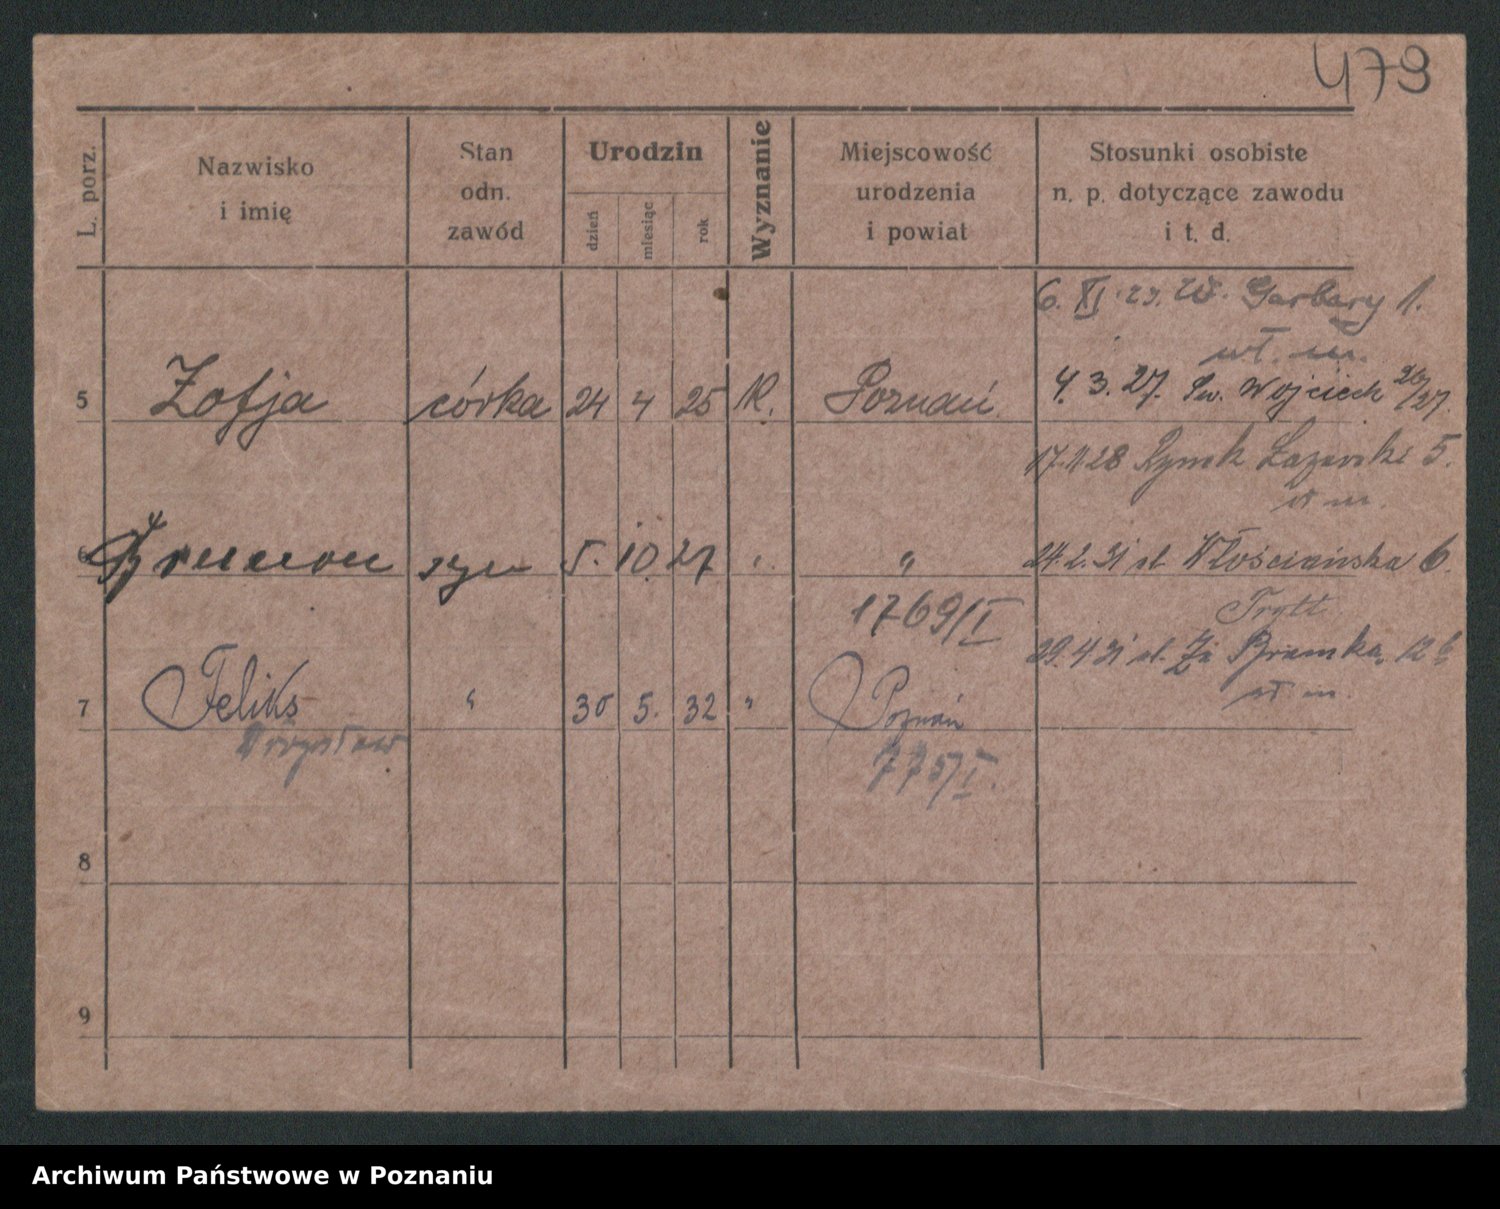 479
L. porz.
Nazwisko
i imię
Stan
odn.
zawód
Urodzin
dzień
miesiąc
rok
Wyznanie
Miejscowość
urodzenia
i powiat
Stosunki osobiste
n. p. dotyczące zawodu
i t. d.
6. XI. Garbary 1.
wł. m.
5 Zofja córka 24 4 25 R. Poznań 4. 3. 27. Św. Wojciech 26/27.
28 Rynek Łazarski 5.
wł m.
syn 5. 10. 27 " " 24. 2. 31 Włościańska 6.
1769/I
29. 4 31 Za Bramką 12
wł m.
7 Feliks " 30 5. 32 " Poznań
775/I.
8
9
Archiwum Państwowe w Poznaniu